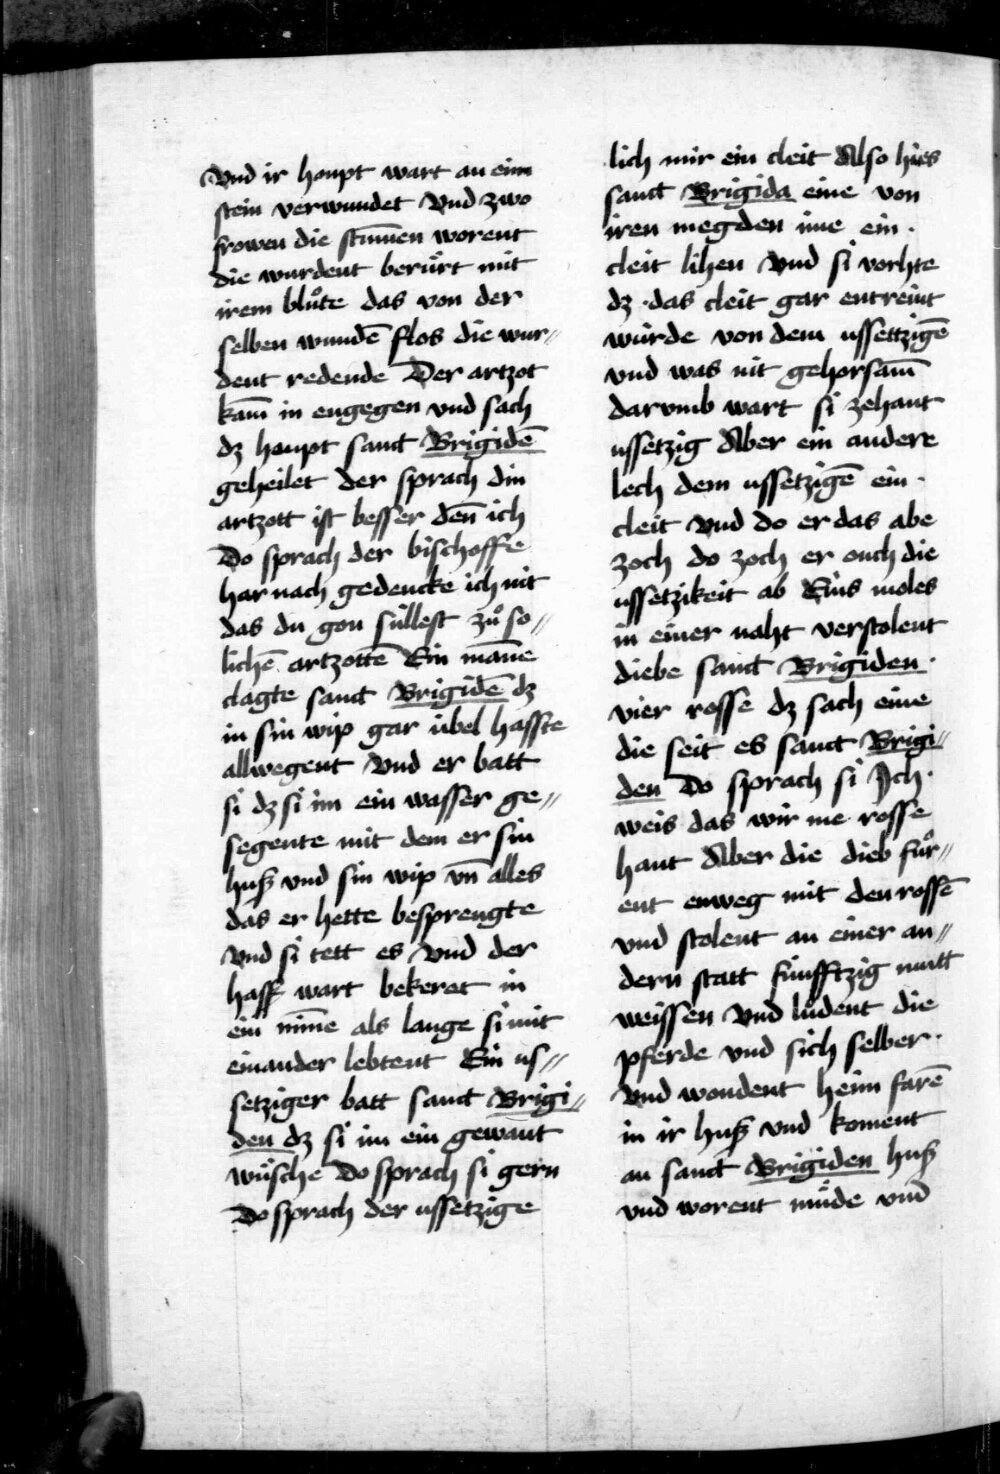 Vnd ir houpt wart an eim
stein verwundet Vnd zwo
frowen die stum̄en worent
die wurdent berürt mit
irem blůte das von der
selben wundē flos die wur〃
dent redende Der artzot
kam̄ in engegen vnd sach
dz houpt sanct Brigidē
geheilet der sprach din
artzott ist besser den̄ ich
Do sprach der bischoffe
har nach gedencke ich nit
das du gon süllest zů so〃
lichē artzottē Ein man̄e
clagte sanct Brigidē dz
in sin wip gar übel hasste
allwegent Vnd er batt
si dz si im ein wasser ge〃
segente mit dem er sin
huß vnd sin wip vn̄ alles
das er hette besprengte
Vnd si tett es Vnd der
hass wart bekeret in
ein mim̄e als lange si mit
einander lebtent Ein us〃
setziger batt sanct Brigi〃
den dz si im ein gewant
wüsche Do sprach si gern
Do sprach der ussetzige
lich mir ein cleit Also hies
sanct Brigida eine von
iren megden ime ein ·
cleit lihen Vnd si vorhte
dz · das cleit gar entreint
würde von dem ussettzigē
vnd was nit gehorsam̄
darvmb wart si zehant
ussetzig Aber ein andere
lech dem ussetzigē ein ·
cleit Vnd do er das abe
zoch do zoch er ouch die
ussetzikeit ab Eins moles
in einer naht verstolent
diebe sanct Brigiden ·
vier rosse dz sach eine
die seit es sanct Brigi〃
den Do sprach si Ich ·
weis das wir me rosse
hant Aber die dieb fůr〃
ent enweg mit den rossē
vnd stolent an einer an〃
dern statt fünfftzig mutt
weissen Vnd lůdent die
pferde vnd sich selber ·
Vnd wondent heim farē
in ir huß vnd koment
an sanct Brigiden huß
vnd worent müde vnd